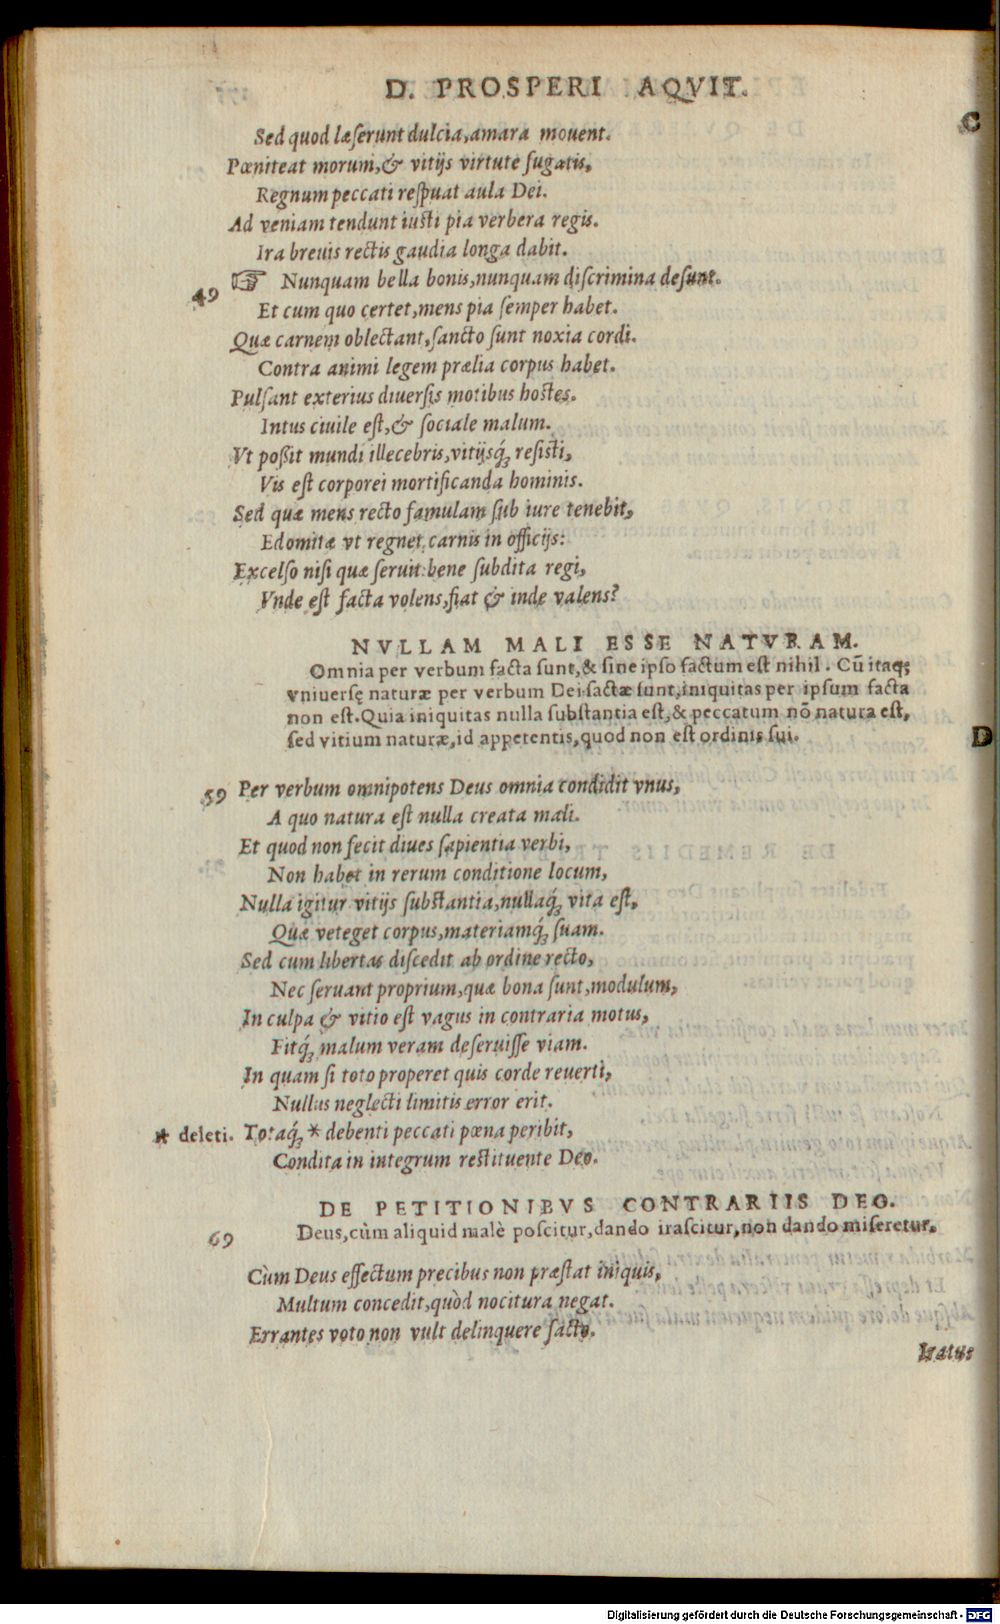 D. PROSPERI AQVIT.
C
Sed quod læſerunt dulcia, amara mouent.
Pœniteat morum, & vitijs virtute fugatis,
Regnum peccati reſpuat aula Dei.
Ad veniam tendunt iusti pia verbera regis.
Ira breuis rectis gaudia longa dabit.
49 ☞ Nunquam bella bonis, nunquam diſcrimina deſunt.
Et cum quo certet, mens pia ſemper habet.
Quæ carnem oblectant, ſancto ſunt noxia cordi.
Contra animi legem prælia corpus habet.
Pulſant exterius diuerſis motibus hostes.
Intus ciuile eſt, & ſociale malum.
Vt poßit mundi illecebris, vitijsq́ꝫ reſisti,
Vis eſt corporei mortificanda hominis.
Sed quæ mens recto famulam ſub iure tenebit,
Edomitæ vt regnet carnis in officijs:
Excelſo niſi quæ ſeruit bene ſubdita regi,
Vnde eſt facta volens, fiat & inde valens?
NVLLAM MALI ESSE NATVRAM.
Omnia per verbum facta ſunt, & ſine ipſo factum eſt nihil. Cũ itaq;
vniuerſę naturæ per verbum Dei factæ ſunt, iniquitas per ipſum facta
non eſt. Quia iniquitas nulla ſubſtantia eſt, & peccatum nõ natura eſt,
ſed vitium naturæ, id appetentis, quod non eſt ordinis ſui.
D
59 Per verbum omnipotens Deus omnia condidit vnus,
A quo natura eſt nulla creata mali.
Et quod non fecit diues ſapientia verbi,
Non habet in rerum conditione locum,
Nulla igitur vitijs ſubſtantia, nullaq́ꝫ vita eſt,
Quæ veteget corpus, materiamq́ꝫ ſuam.
Sed cum libertas diſcedit ab ordine recto,
Nec ſeruant proprium, quæ bona ſunt, modulum,
In culpa & vitio eſt vagus in contraria motus,
Fitq́ꝫ malum veram deſeruiſſe viam.
In quam ſi toto properet quis corde reuerti,
Nullus neglecti limitis error erit.
* deleti. Totaq́ꝫ * debenti peccati pœna peribit,
Condita in integrum reſtituente Deo.
DE PETITIONIBVS CONTRARIIS DEO.
69 Deus, cùm aliquid malè poſcitur, dando iraſcitur, non dando miſeretur.
Cùm Deus effectum precibus non præſtat iniquis,
Multum concedit, quòd nocitura negat.
Errantes voto non vult delinquere facto.
Iratus
Digitalisierung gefördert durch die Deutsche Forschungsgemeinschaft - DFG